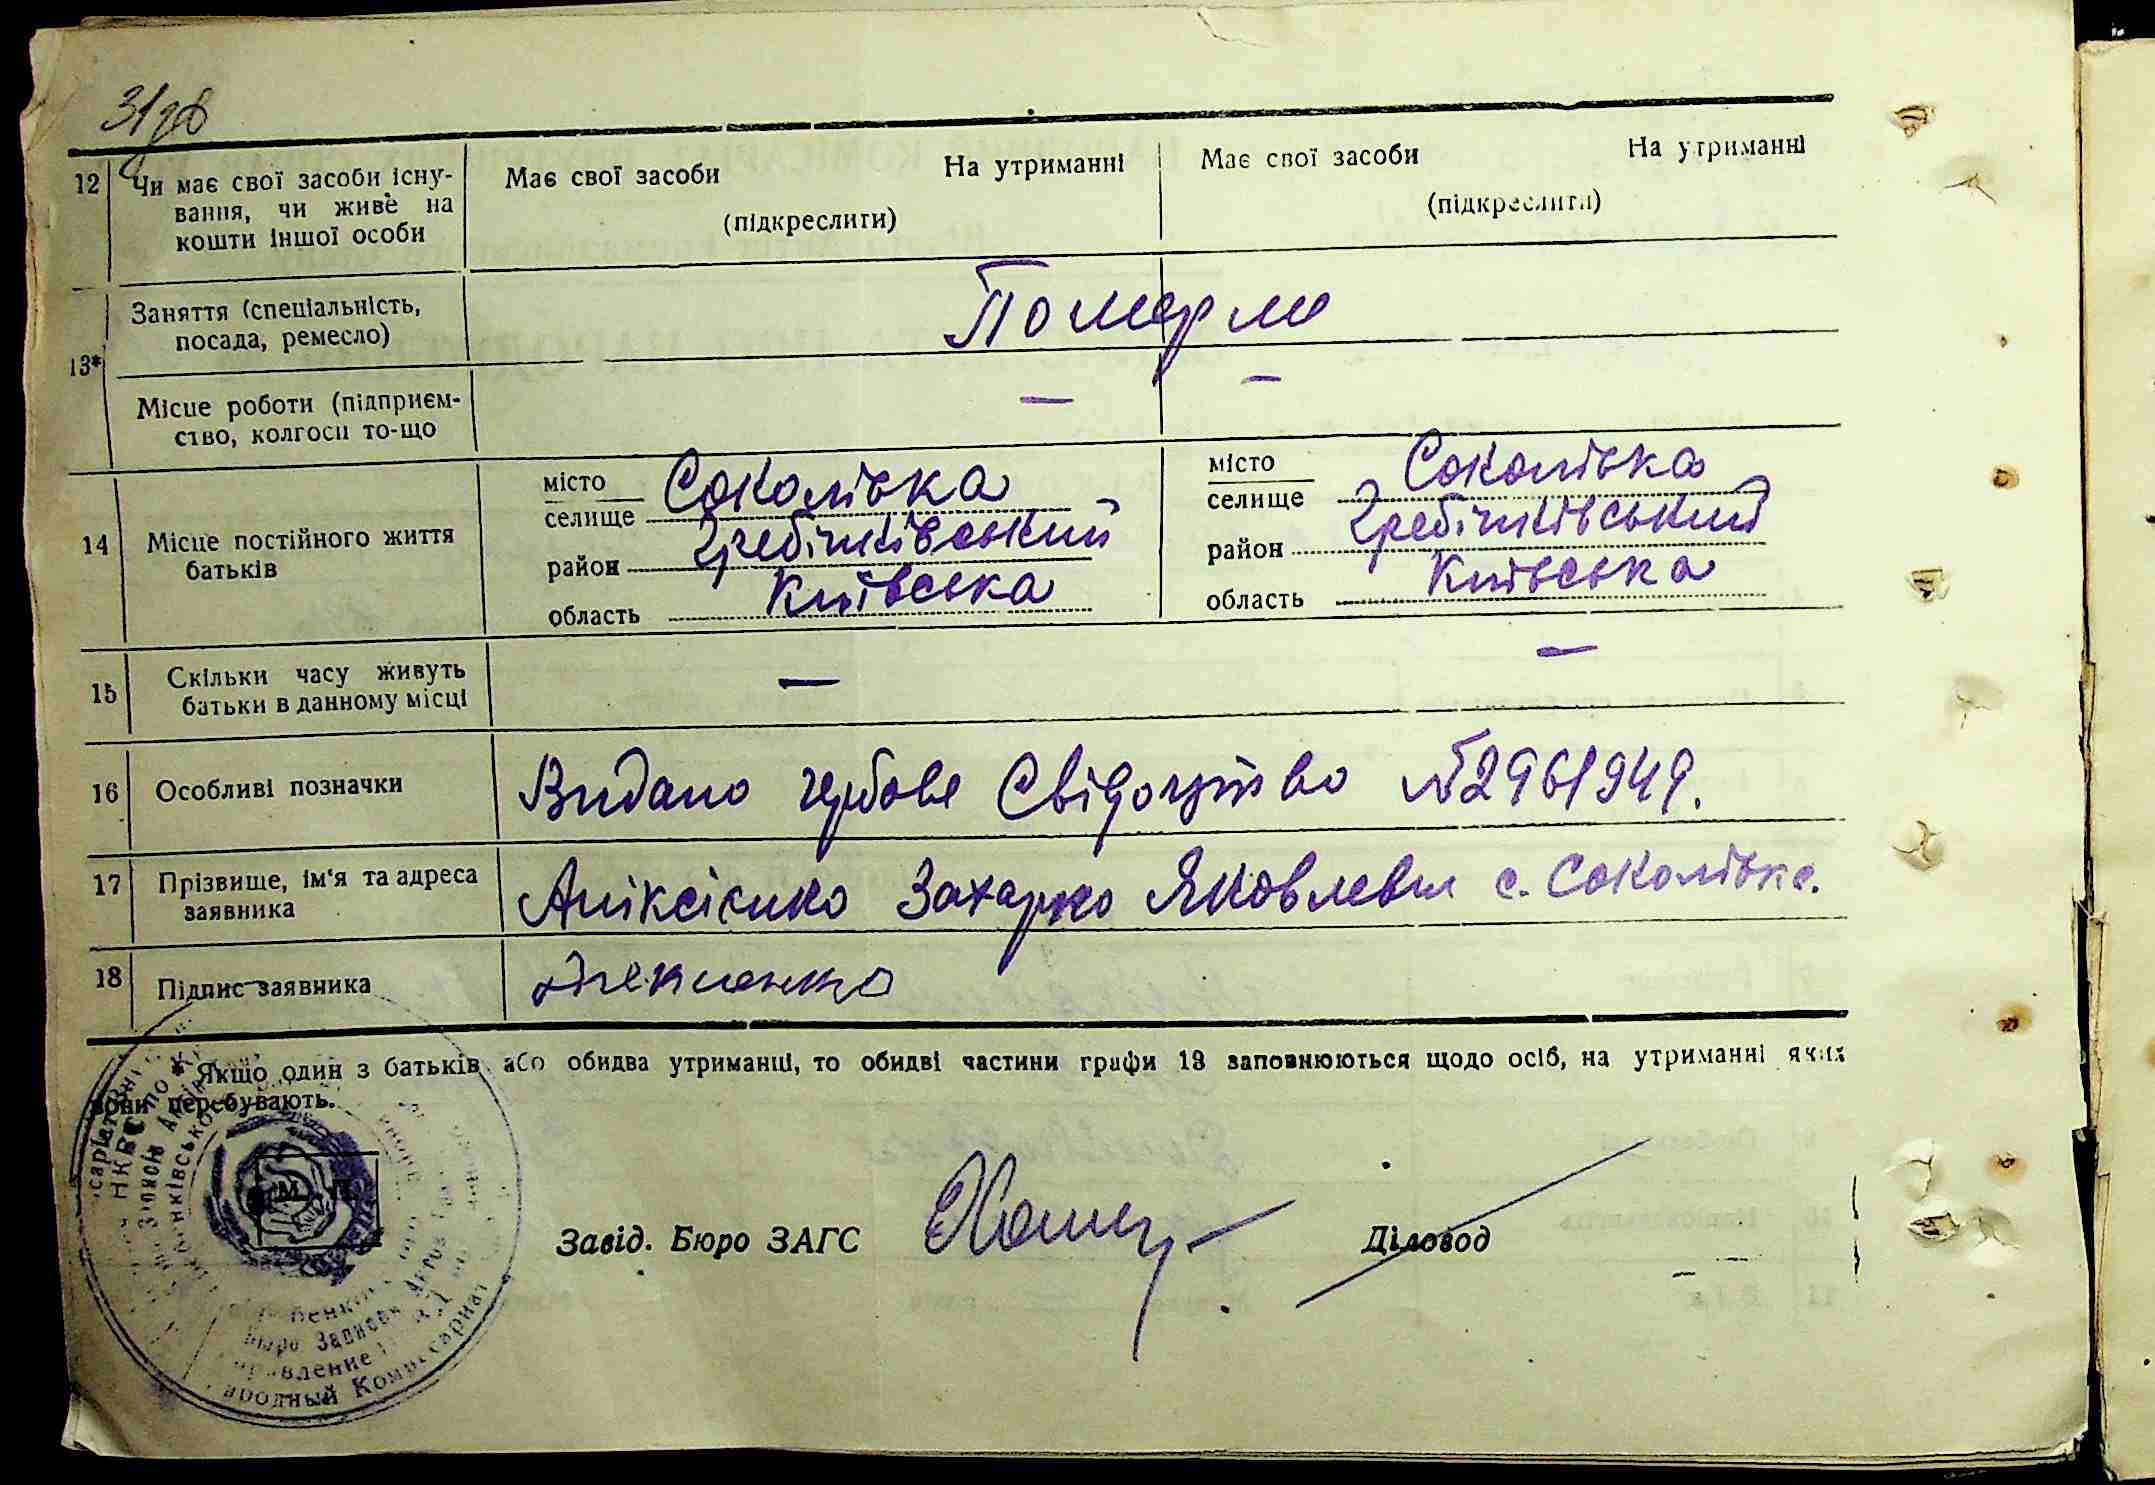 31зв
12 Чи має свої засоби існу-
вання, чи живе на
кошти іншої особи
Має свої засоби На утриманні
(підкреслити)
Має свої засоби На утриманні
(підкреслити)
13*
Заняття (спеціальність,
посада, ремесло)
Померли
Місце роботи (підприєм-
ство, колгосп то-що
— —
14 Місце постійного життя
батьків
місто
селище Соколівка
район Гребінківський
область Київська
місто
селище Соколівка
район Гребінківський
область Київська
15 Скільки часу живуть
батьки в данному місці
— —
16 Особливі позначки
Видано гербове Свідоцтво №2961949.
17 Прізвище, ім'я та адреса
заявника
Аліксієнко Захарко Яковлевич с. Соколівка.
18 Підпис заявника
*Якщо один з батьків або обидва утриманці, то обидві частини графи 13 заповнюються щодо осіб, на утриманні яких
вони перебувають.
Завід. Бюро ЗАГС
Діловод
НКВС по
Бюро Записи Актов
ародный Комиссариат